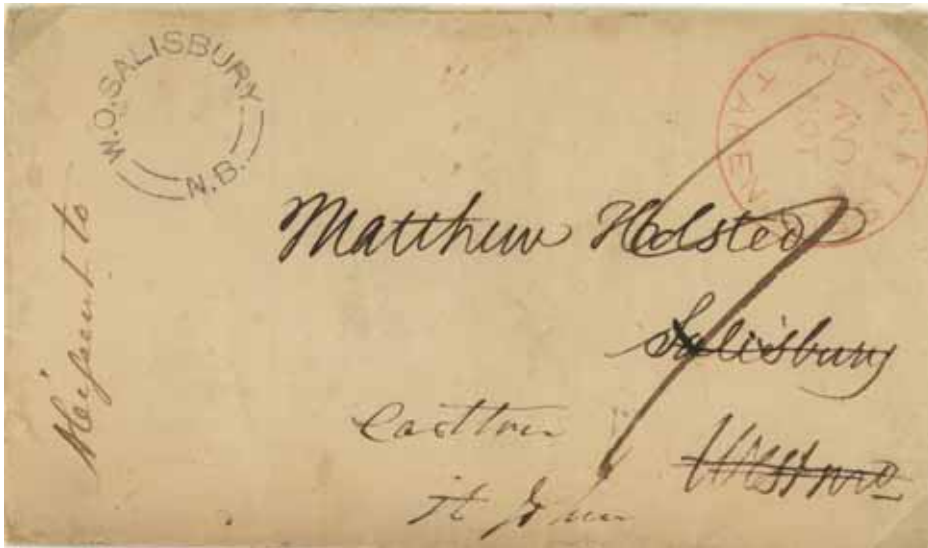 W.O. SALISBURY
N.B.
ADVERTISED
AND
NOT
TAKEN
Missent to
Matthew Holsted
Salisbury
St John